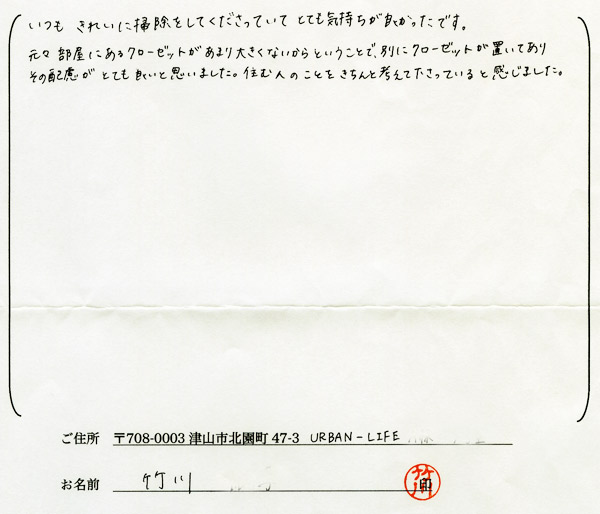 いつも きれいに掃除をしてくださっていて とても気持ちが良かったです。
元々 部屋にあるクローゼットがあまり大きくないからということで、別にクローゼットが置いてあり
その配慮が とても良いと思いました。住む人のことをきちんと考えて下さっていると感じました。
ご住所 〒708-0003 津山市北園町 47-3 URBAN-LIFE
お名前 竹川 印
竹川